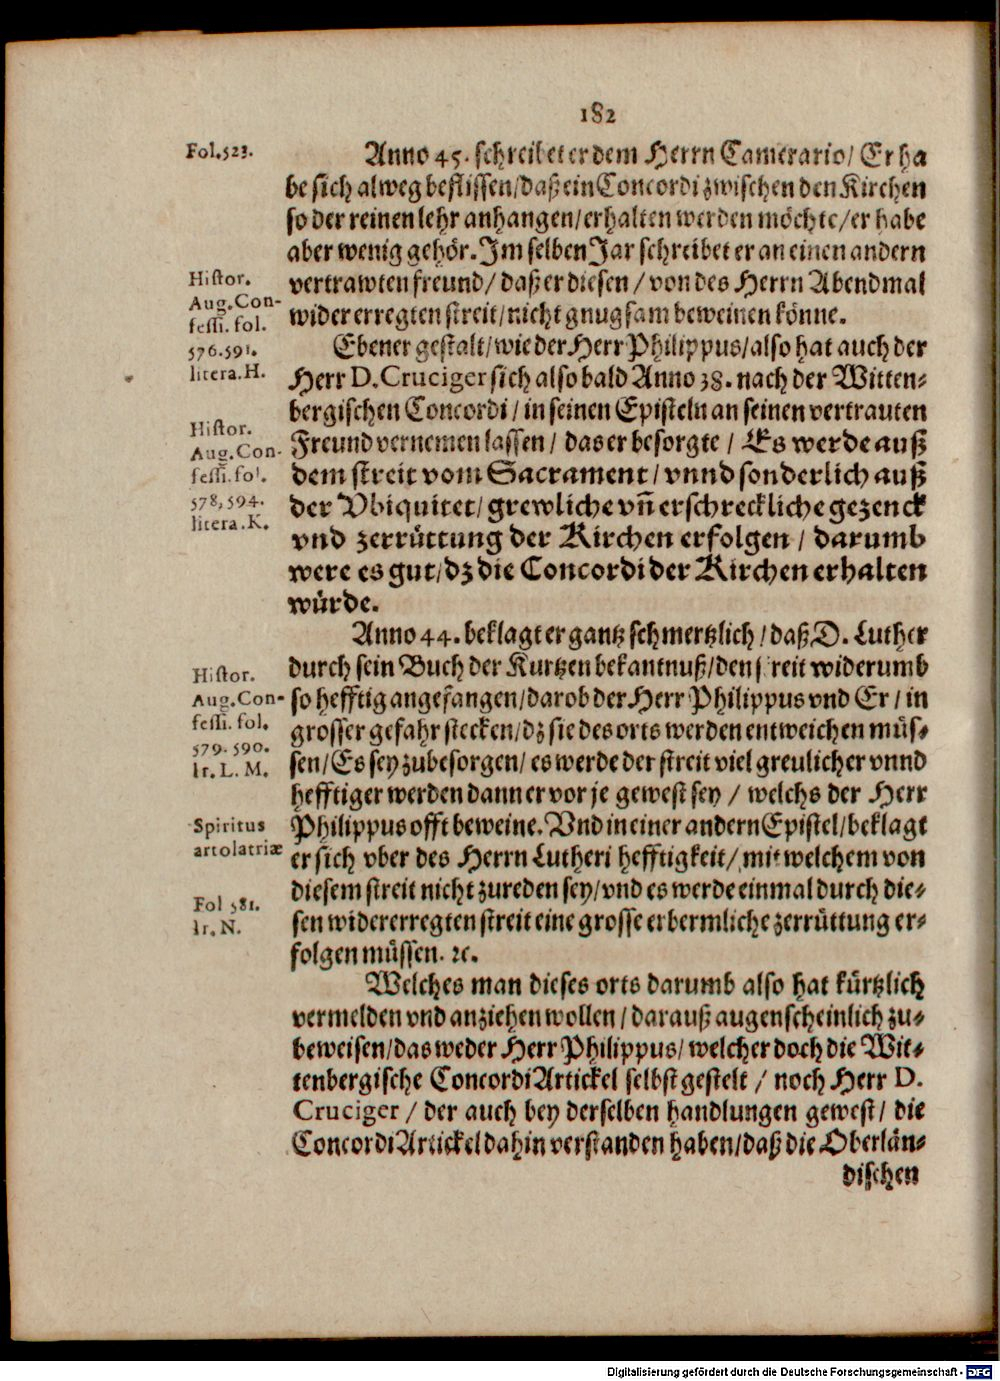 182
Fol.523.
Anno 45. schreibet er dem Herrn Camerario/ Er ha
be sich alweg beflissen/daß ein Concordi zwischen den Kirchen
so der reinen lehr anhangen/erhalten werden möchte/er habe
aber wenig gehör. Im selben Jar schreibet er an einen andern
vertrawten freund/ daß er diesen / von des Herrn Abendmal
wider erregten streit/nicht gnugsam beweinen könne.
Histor.
Aug.Con-
fessi. fol.
576.591.
litera.H.
Ebener gestalt/wie der Herr Philippus/also hat auch der
Herr D.Cruciger sich also bald Anno 38. nach der Witten-
bergischen Concordi / in seinen Episteln an seinen vertrauten
Freund vernemen lassen / das er besorgte / Es werde auß
dem streit vom Sacrament/ vnnd sonderlich auß
der Vbiquitet/ grewliche vñ erschreckliche gezenck
vnd zerrüttung der Kirchen erfolgen / darumb
were es gut/dz die Concordi der Kirchen erhalten
würde.
Histor.
Aug.Con-
fessi.fol.
578,594.
litera.K.
Anno 44. beklagt er gantz schmertzlich/daß D. Luther
durch sein Buch der Kurtzen bekantnuß/den streit widerumb
so hefftig angefangen/darob der Herr Philippus vnd Er/ in
grosser gefahr stecken/dz sie des orts werden entweichen müs-
sen/Es sey zubesorgen/ es werde der streit viel greulicher vnnd
hefftiger werden dann er vor je gewest sey / welchs der Herr
Philippus offt beweine. Vnd in einer andern Epistel/beklagt
er sich vber des Herrn Lutheri hefftigkeit/ mit welchem von
diesem streit nicht zureden sey/vnd es werde einmal durch die-
sen widererregten streit eine grosse erbermliche zerrüttung er-
folgen müssen. ꝛc.
Histor.
Aug.Con-
fessi. fol.
579.590.
lr. L. M.
Spiritus
artolatriæ
Fol 581.
lr. N.
Welches man dieses orts darumb also hat kürtzlich
vermelden vnd anziehen wollen / darauß augenscheinlich zu-
beweisen/das weder Herr Philippus/ welcher doch die Wit-
tenbergische Concordi Artickel selbst gestelt / noch Herr D.
Cruciger / der auch bey derselben handlungen gewest/ die
Concordi Artickel dahin verstanden haben/daß die Oberlän-
dischen
Digitalisierung gefördert durch die Deutsche Forschungsgemeinschaft - DFG